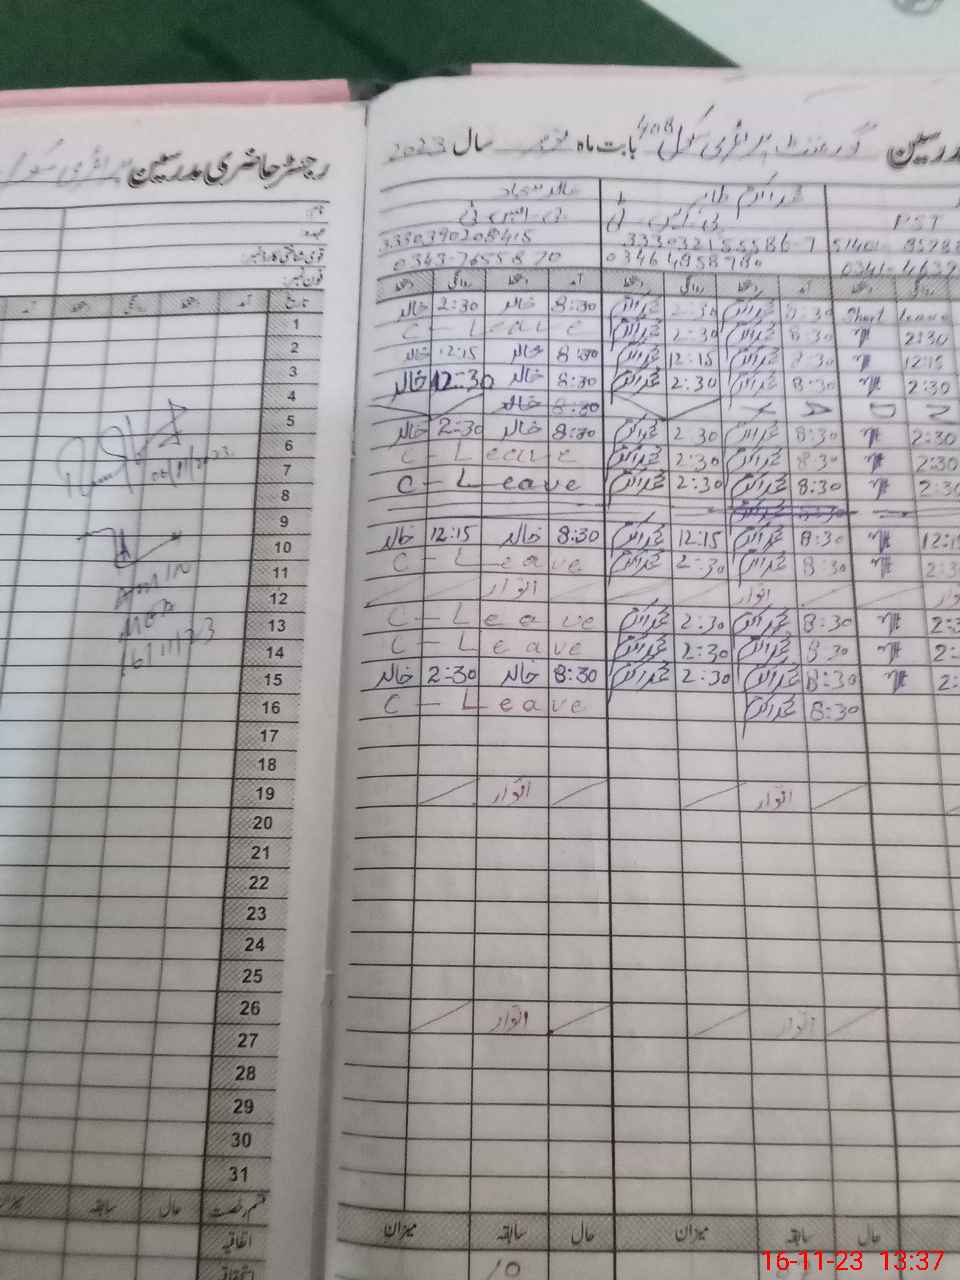 رجسٹر حاضری مدرسین
قومی شناختی کارڈ نمبر:
فون نمبر:
تاریخ آمد دستخط روانگی دستخط آمد
1
2
3
4
5
6
7
8
9
10
11
12
13
14
15
16
17
18
19
20
21
22
23
24
25
26
27
28
29
30
31
قسم رخصت حال سابقہ میزان
اتفاقیہ
06/11/2023
16/11/23
مدرسین گورنمنٹ پرائمری سکول 408 بابت ماہ نومبر سال 2023
PST محمد اکرم خالد سجاد
پی ایس ٹی
3330390208415
0343-7655870 0341-4637
آمد دستخط روانگی دستخط آمد دستخط روانگی دستخط
Short Leave 8:30 محمد اکرم 2:30 محمد اکرم 8:30 خالد 2:30 خالد
2:30 8:30 محمد اکرم 2:30 محمد اکرم C - Leave
12:15 8:30 محمد اکرم 12:15 محمد اکرم 8:30 خالد 12:15 خالد
2:30 8:30 محمد اکرم 2:30 محمد اکرم 8:30 خالد 12:30 خالد
8:30 خالد
2:30 8:30 محمد اکرم 2:30 محمد اکرم 8:30 خالد 2:30 خالد
2:30 8:30 محمد اکرم 2:30 محمد اکرم C - Leave
2:30 8:30 محمد اکرم 2:30 محمد اکرم C - Leave
12:15 8:30 محمد اکرم 12:15 محمد اکرم 8:30 خالد 12:15 خالد
2:30 8:30 محمد اکرم 2:30 محمد اکرم C - Leave
اتوار اتوار
8:30 محمد اکرم 2:30 محمد اکرم C - Leave
8:30 محمد اکرم 2:30 محمد اکرم C - Leave
8:30 محمد اکرم 2:30 محمد اکرم 8:30 خالد 2:30 خالد
8:30 محمد اکرم C - Leave
اتوار اتوار
اتوار اتوار
حال سابقہ میزان حال سابقہ میزان
10
16-11-23 13:37